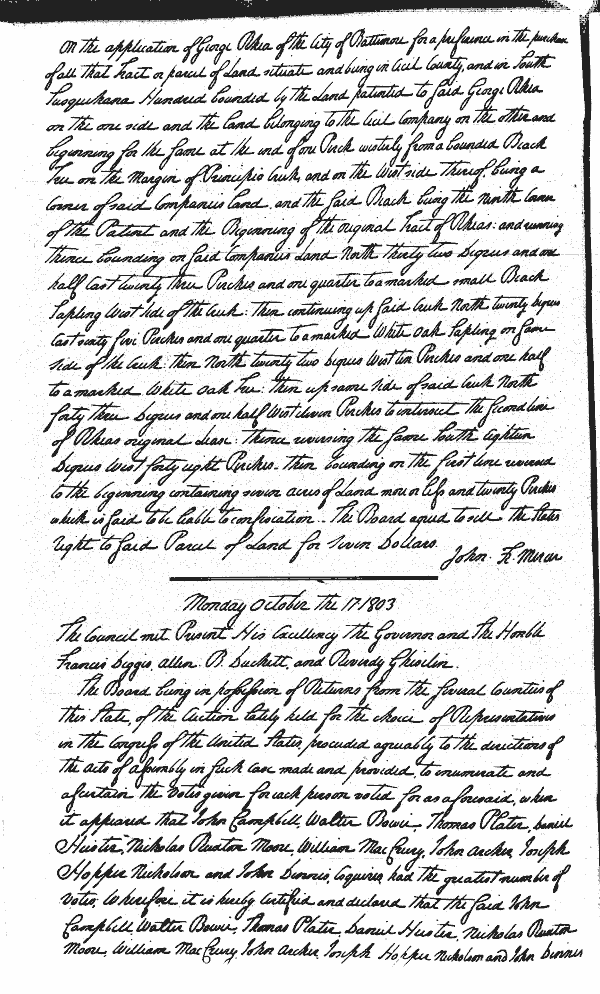 On the application of George Rhea of the City of Baltimore for a preference in the purchase
of all that Tract or parcel of Land situate and being in Cecil County, and in South
Susquehana Hundred bounded by the Land patented to said George Rhea
on the one side and the land belonging to the Cecil Company on the other and
beginning for the same at the end of one Perch westerly from a bounded Beach
Tree on the Margin of Principio Creek, and on the West side thereof, being a
corner of said Companies Land, and the said Beach being the ninth corner
of the Patent and the Beginning of the original Tract of Rheas: and running
thence bounding on said Companies Land North thirty two Degrees and one
half East twenty three Perches and one quarter to a marked small Beach
Sapling West side of the Creek: then continuing up said Creek North twenty degrees
East sixty five Perches and one quarter to a marked White Oak Sapling on same
side of the Creek: then North twenty two degrees West ten Perches and one half
to a marked White Oak Tree: then up same side of said Creek North
forty three Degrees and one half West eleven Perches to intersect the second line
of Rheas original Lease: thence reversing the same South eighteen
Degrees West forty eight Perches. then bounding on the first line reversed
to the beginning containing seven acres of Land more or less and twenty Perches
which is said to be liable to confiscation. The Board agreed to sell the States
right to said Parcel of Land for seven Dollars.
John F. Mercer
Monday October the 17 1803
The Council met Present His Excellency the Governor and the Honble
Francis Digges, Allen. B. Duckett, and Reverdy Ghiselin.
The Board being in possession of Returns from the several Counties of
this State, of the Election lately held for the choice of Representatives
in the Congress of the United States, proceeded agreeably to the directions of
the acts of assembly in such case made and provided, to enumerate and
ascertain the votes given for each person voted for as aforesaid, when
it appeared that John Campbell, Walter Bowie, Thomas Plater, Daniel
Hiester, Nicholas Ruxton Moore, William MacCreery, John Archer, Joseph
Hopper Nicholson and John Dennis, Esquires, had the greatest number of
votes, Wherefore it is hereby certified and declared that the said John
Campbell, Walter Bowie, Thomas Plater, Daniel Hiester, Nicholas Ruxton
Moore, William MacCreery, John Archer, Joseph Hopper Nicholson and John Dennis